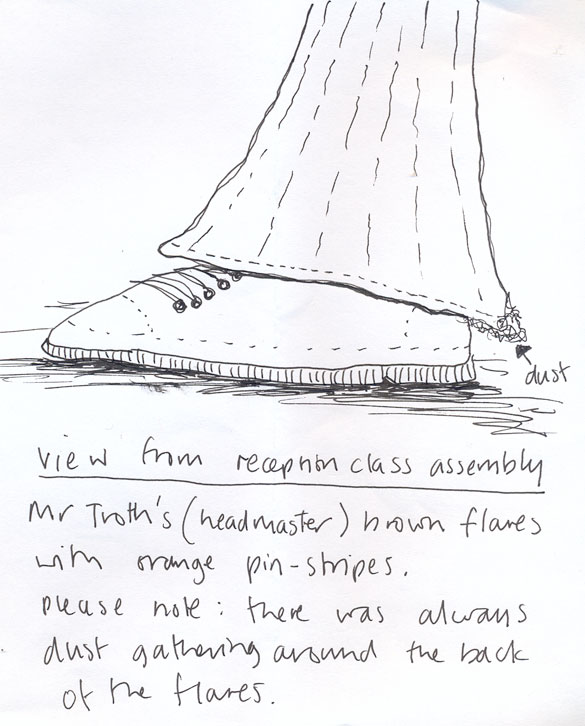 dust
view from reception class assembly
Mr Troth's (headmaster) brown flares
with orange pin-stripes.
please note : there was always
dust gathering around the back
of the flares.